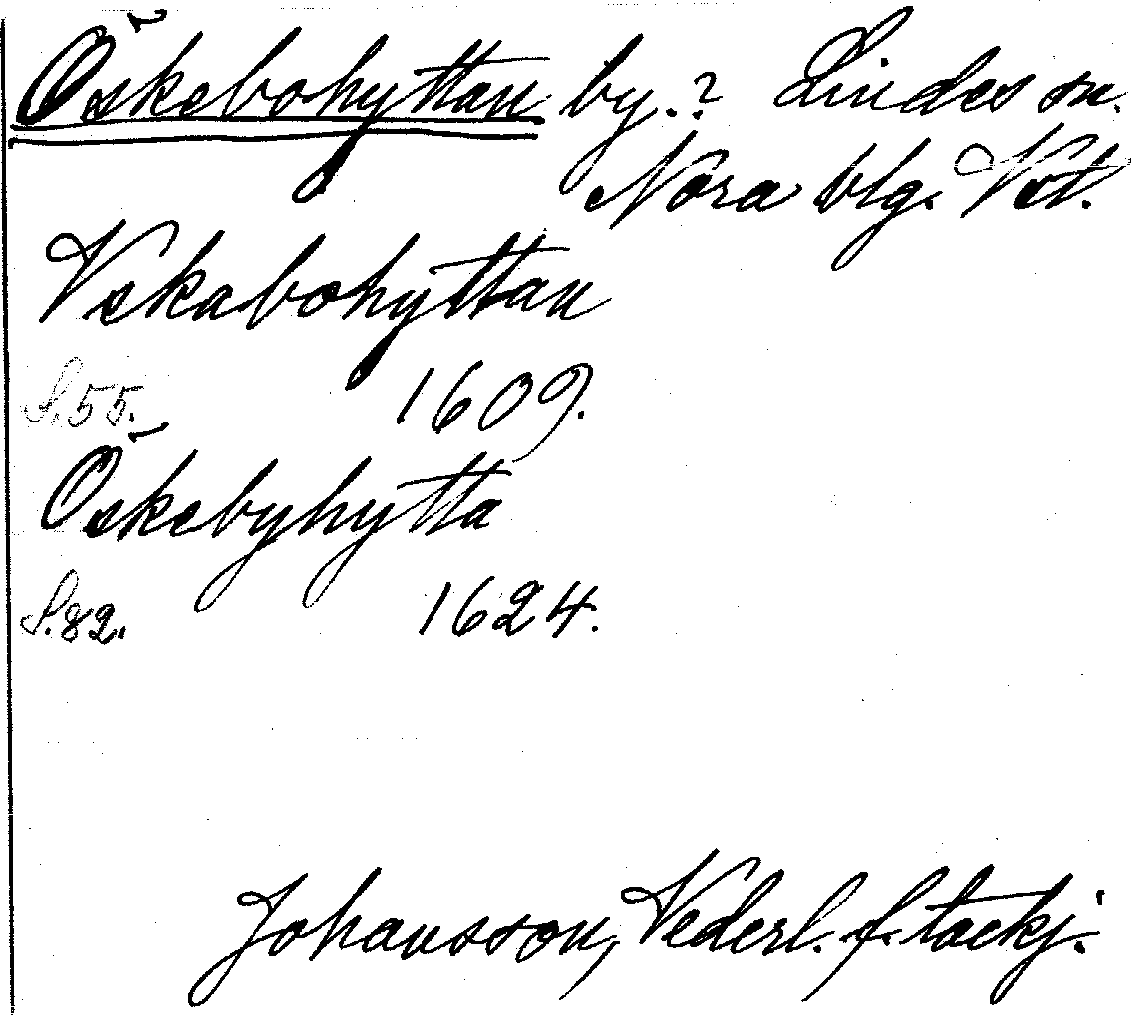 Öskebohyttan by.? Lindes sn.
Nora blg. Vst.
Vskabohyttan
S.55. 1609.
Öskebyhytta
S.82. 1624.
Johansson, Vederl. f. tackj.